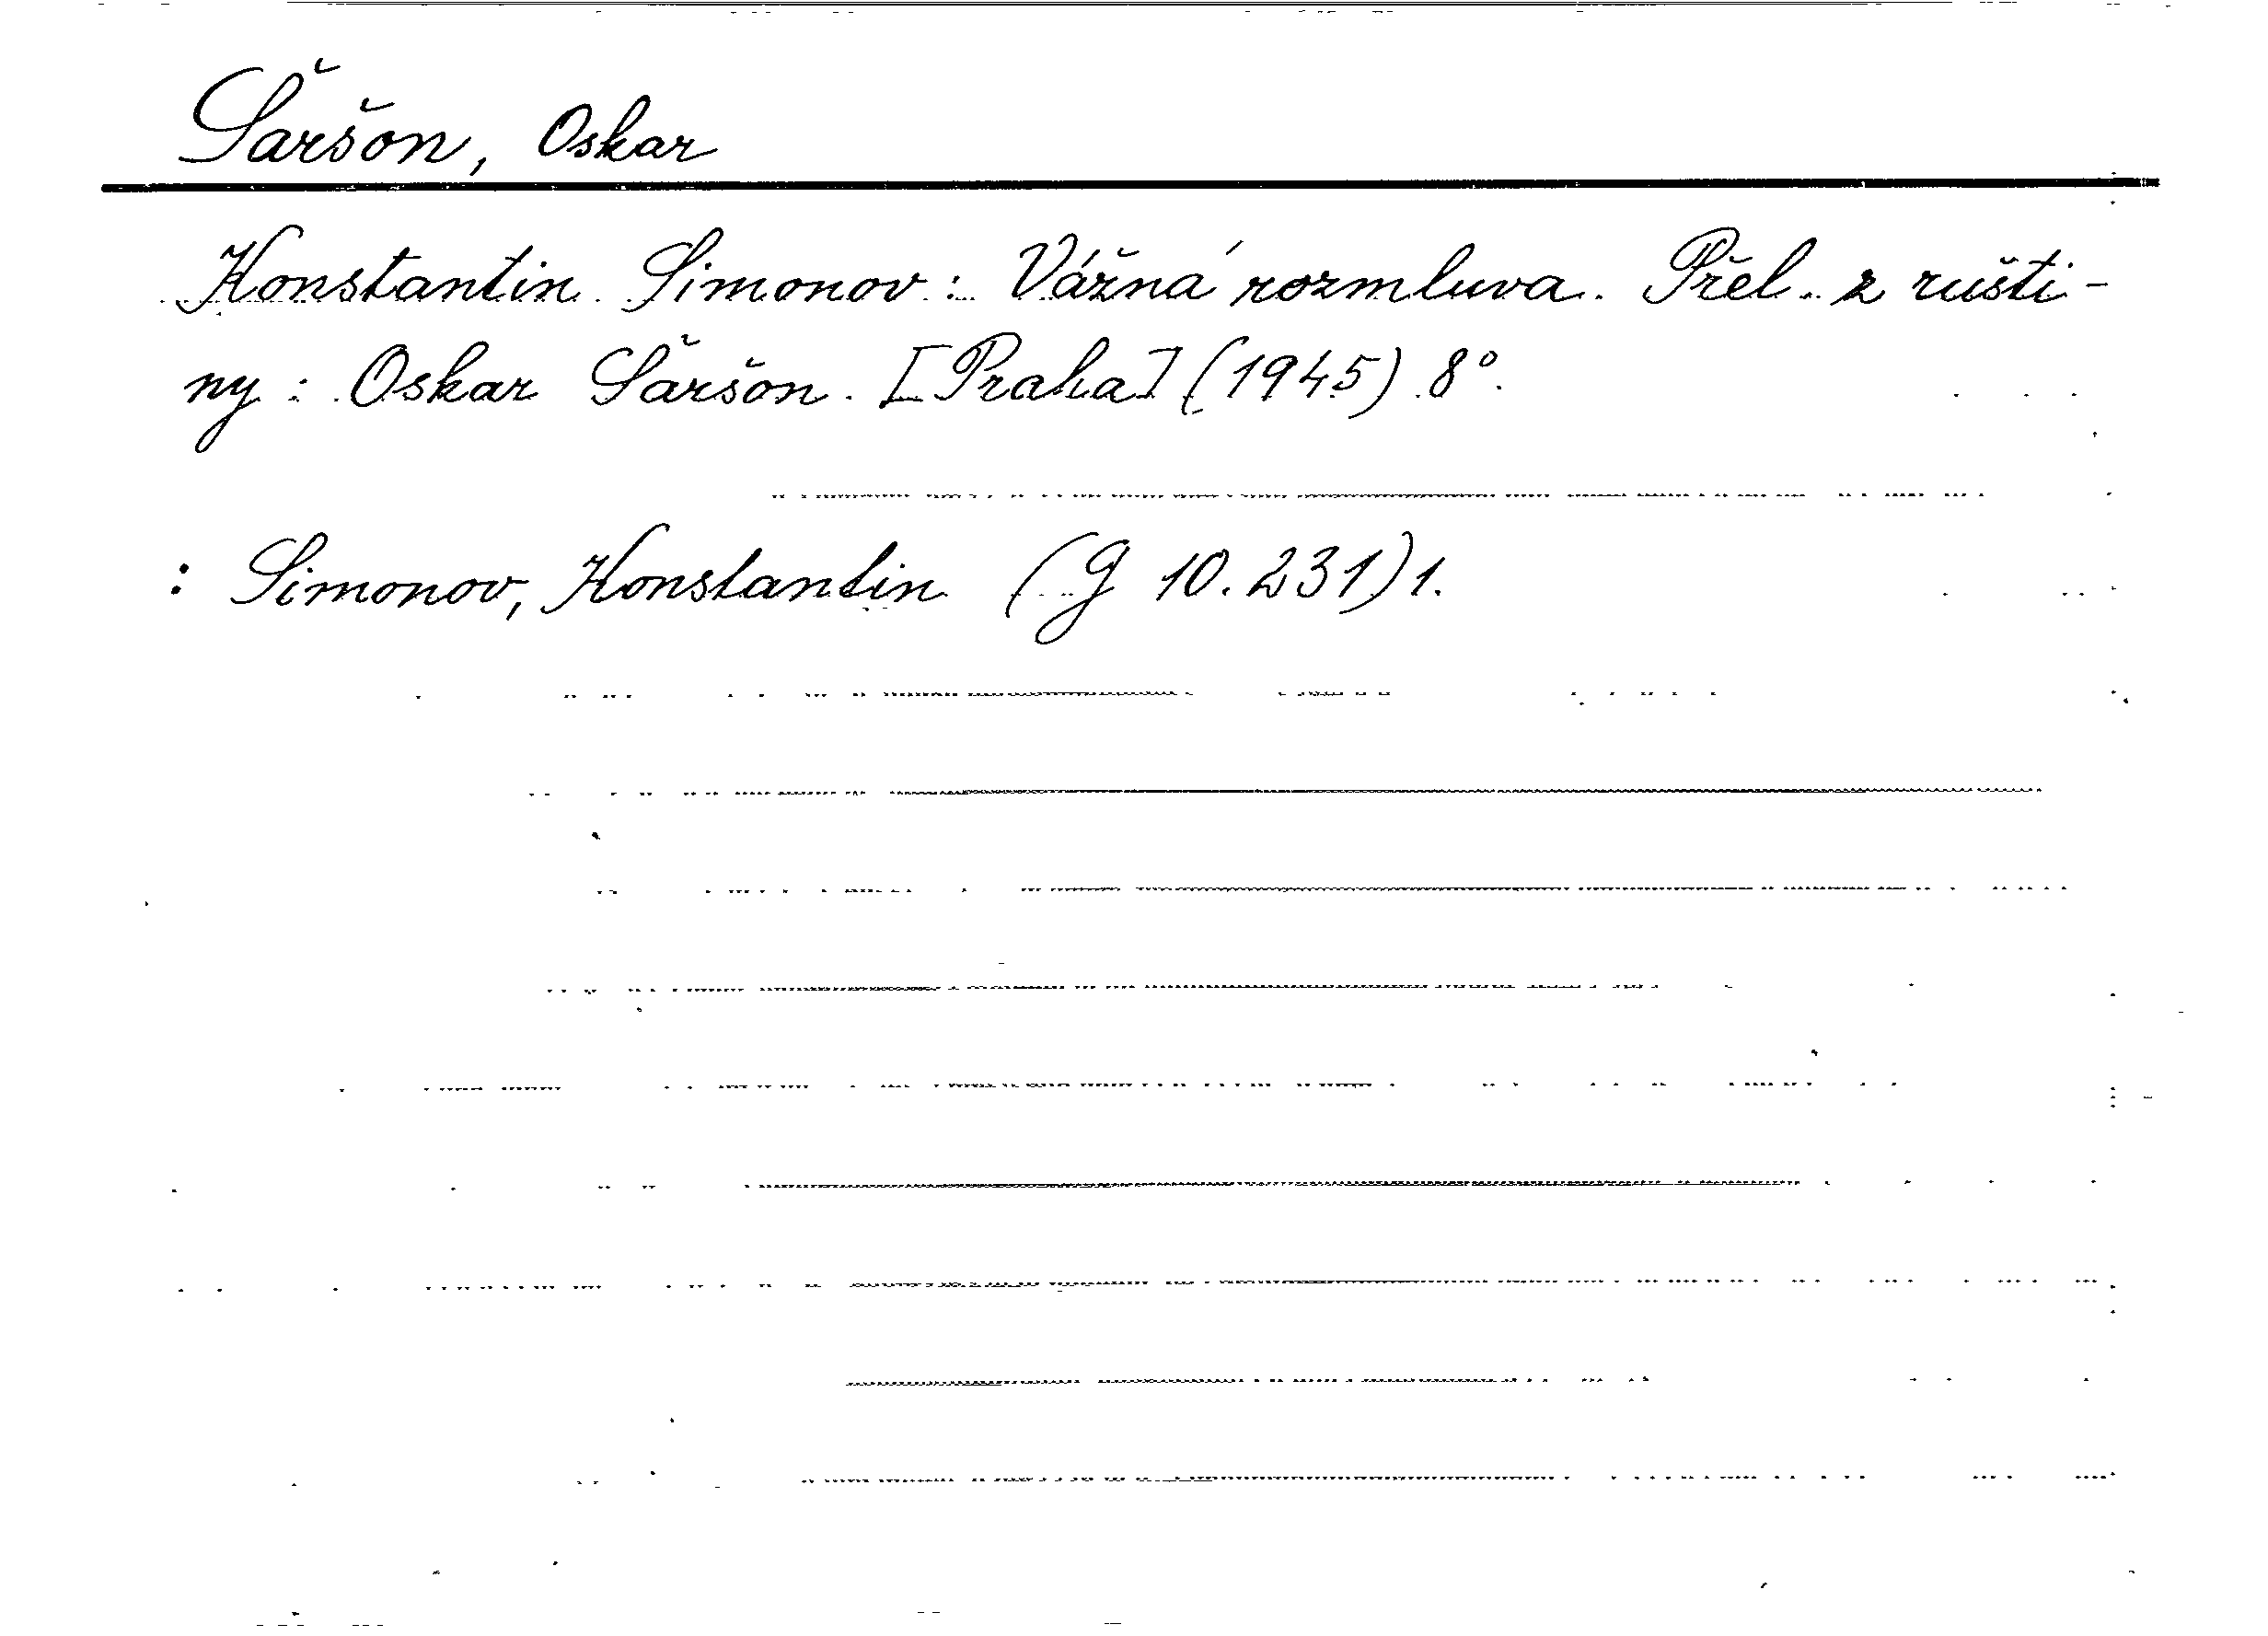 Šaršon, Oskar
Konstantin Simonov: Vážná rozmluva. Přel. z rušti-
ny: Oskar Šaršon. [Praha] (1945) 8°.
: Simonov, Konstantin (G 10.231) 1.